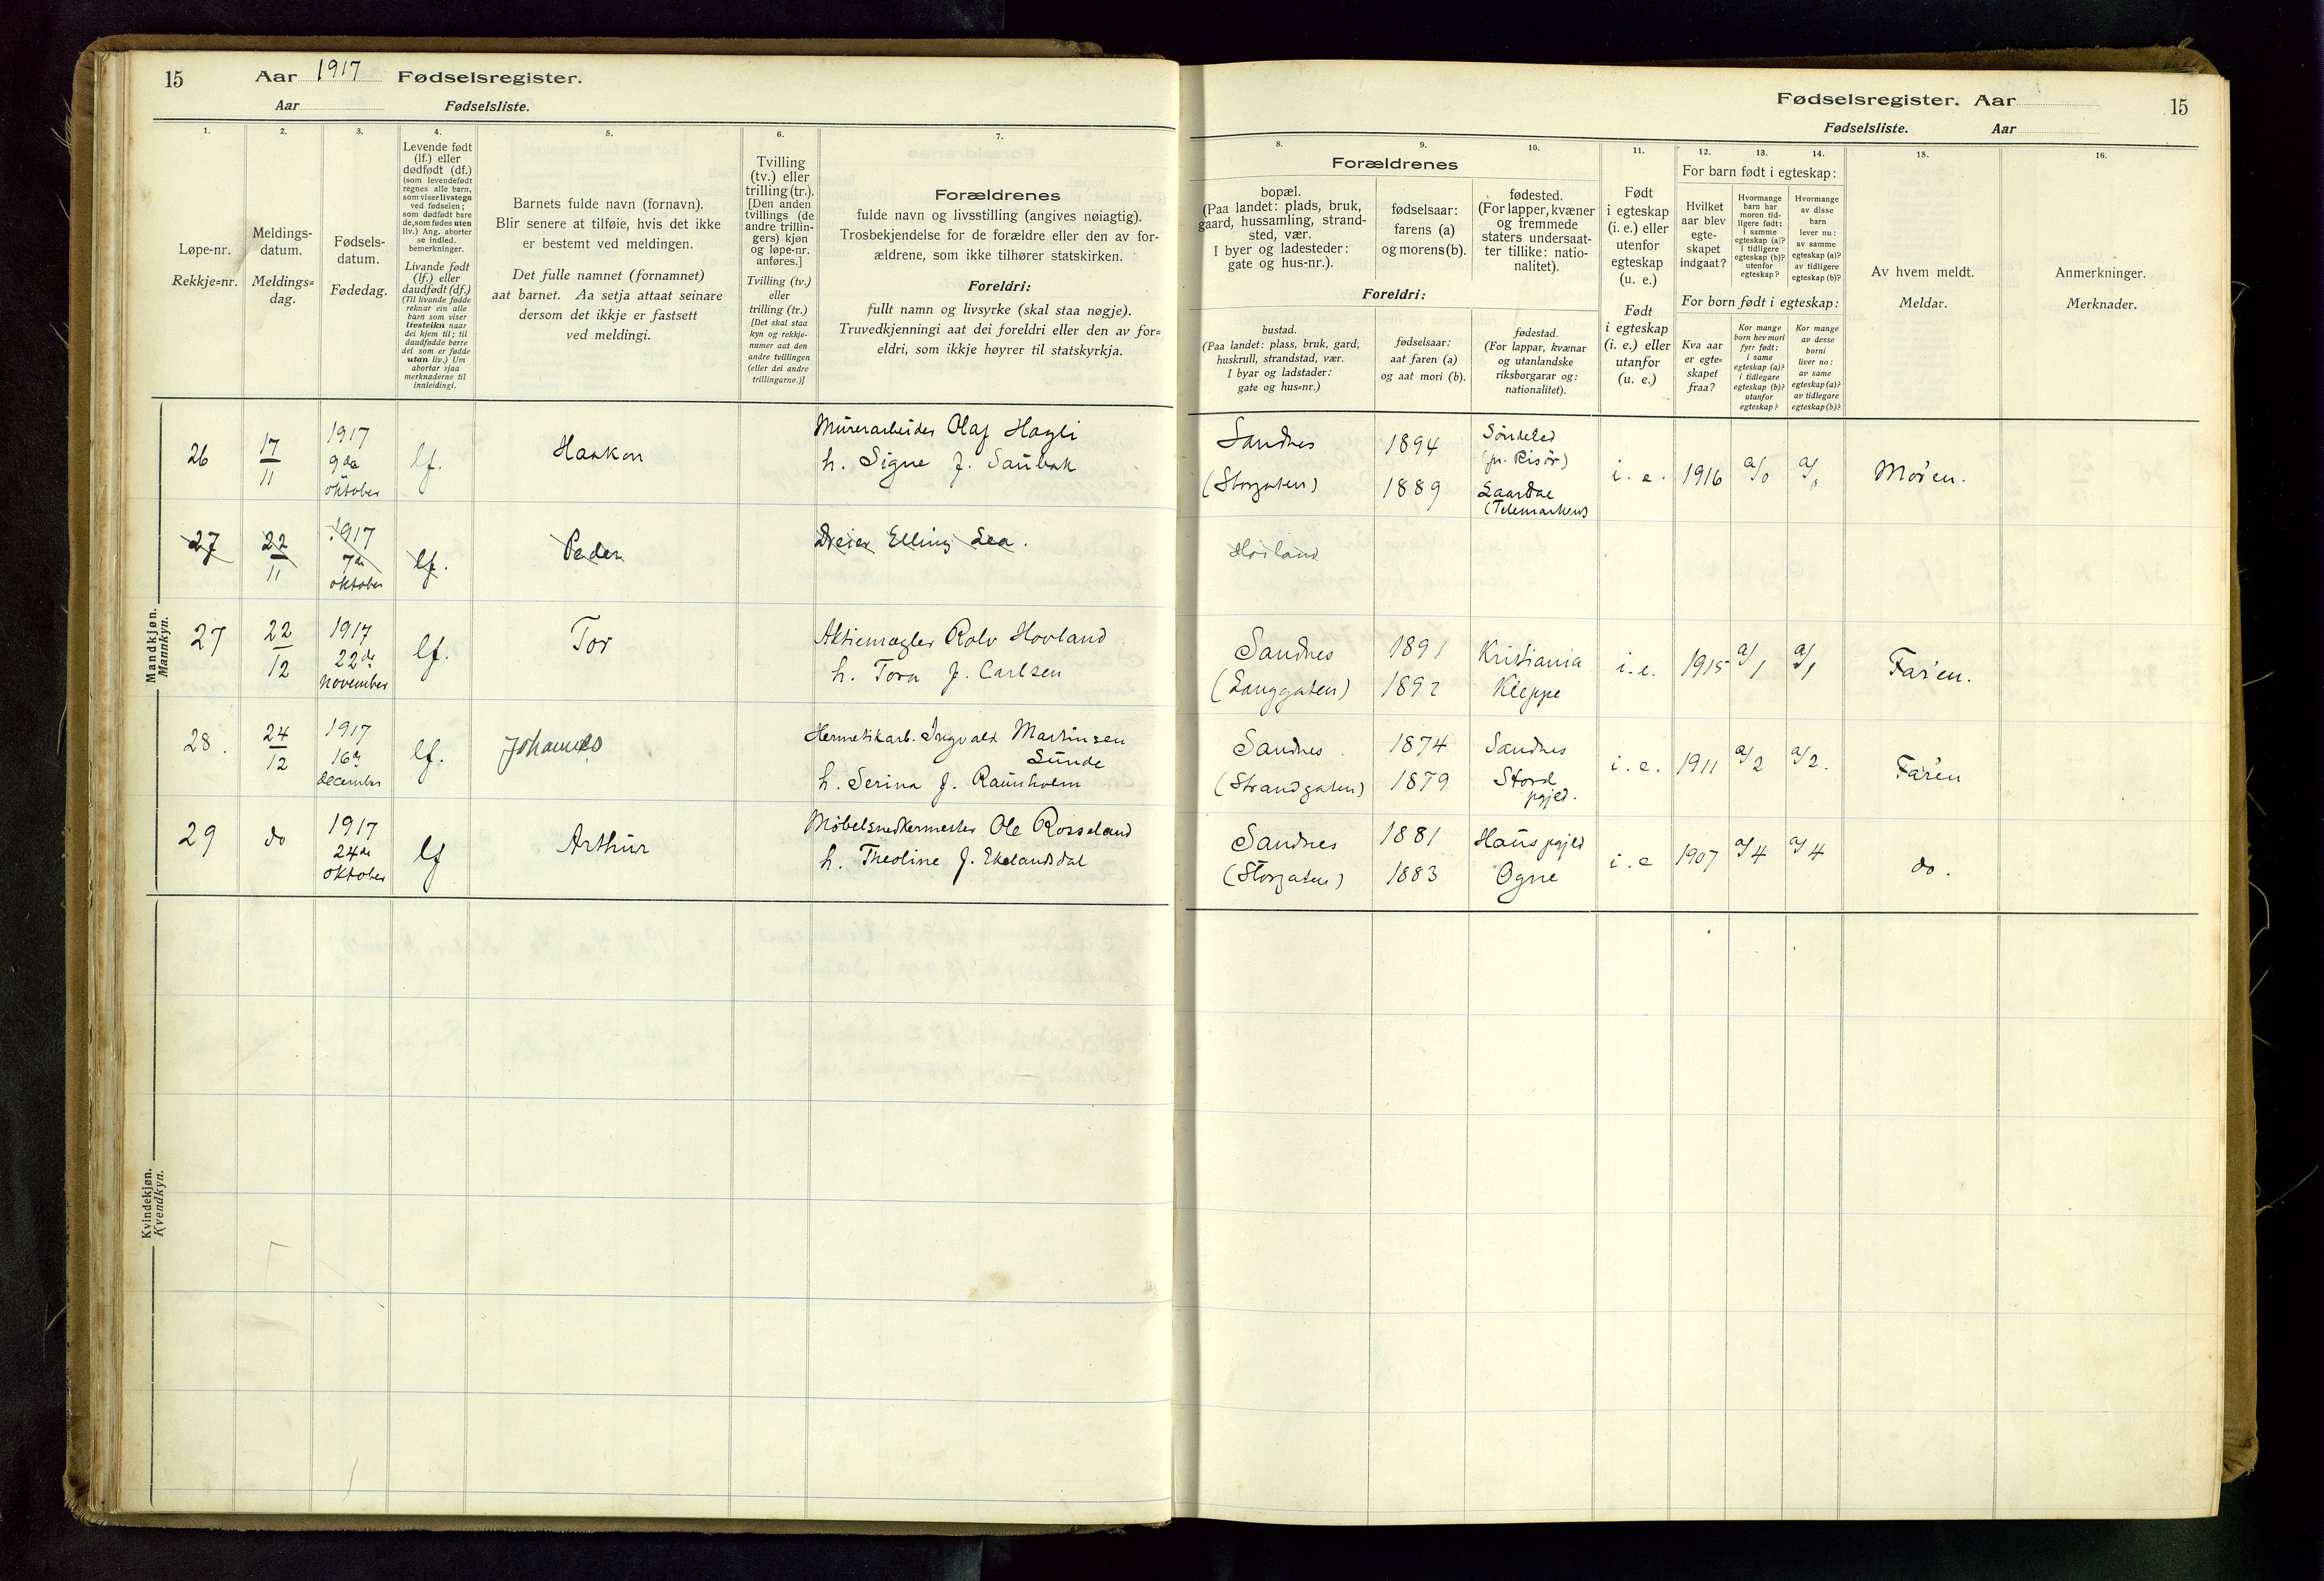 15 Aar 1917 Fødselsregister.
Aar Fødselsliste.
1. 2. 3. 4. 5. 6. 7.
Løpe-nr.
Rekkje=nr.
Meldings-
datum.
Meldings=
dag.
Fødsels-
datum.
Fødedag.
Levende født
(lf.) eller
dødfødt (df.)
(som levendefødt
regnes alle barn,
som viser livstegn
ved fødselen;
som dødfødt bare
de, som fødes uten
liv.) Ang. aborter
se indled.
bemerkninger.
Livande født
(lf.) eller
daudfødt (df.)
(Til livande fødde
reknar ein alle
barn som viser
livsteikn naar
dei kjem til; til
daudfødde berre
dei som er fødde
utan liv.) Um
abortar sjaa
merknaderne til
innleidingi.
Barnets fulde navn (fornavn).
Blir senere at tilføie, hvis det ikke
er bestemt ved meldingen.
Det fulle namnet (fornamnet)
aat barnet. Aa setja attaat seinare
dersom det ikkje er fastsett
ved meldingi.
Tvilling
(tv.) eller
trilling (tr.).
[Den anden
tvillings (de
andre trillin-
gers) kjøn
og løpe-nr.
anføres.]
Tvilling (tv.)
eller
trilling (tr.)
[Det skal staa
kyn og rekkje-
numer aat den
andre tvillingen
(eller dei andre
trillingarne.)]
Forældrenes
fulde navn og livsstilling (angives nøiagtig).
Trosbekjendelse for de forældre eller den av for-
ældrene, som ikke tilhører statskirken.
Foreldri:
fullt namn og livsyrke (skal staa nøgje).
Truvedkjenningi aat dei foreldri eller den av for=
eldri, som ikkje høyrer til statskyrkja.
Mandkjøn.
Mannkyn.
26 17/11 1917 9de oktober lf. Haakon
Murerarbeider Olaf Hagli
h. Signe f. Saubak
27 22/11 1917 7de oktober lf. Peder
Dreier Elling Lea.
27 22/12 1917 22de november lf. Tor
Aktiemægler Rolv Hovland
h. Tora f. Carlsen
28. 24/12 1917 16de december lf. Johannes
Hermetikarb. Ingvald Martinsen
Sunde
h. Serina f. Raunholm
29 do 1917 24de oktober lf Arthur
Møbelsnedkermester Ole Rosseland
h. Theoline f. Ekelandsdal
Kvindekjøn.
Kvendkyn.
Fødselsregister. Aar 15
Fødselsliste. Aar
8. 9. 10. 11. 12. 13. 14. 15. 16.
Forældrenes
bopæl.
(Paa landet: plads, bruk,
gaard, hussamling, strand-
sted, vær.
I byer og ladesteder:
gate og hus-nr.).
fødselsaar:
farens (a)
og morens (b).
fødested.
(For lapper, kvæner
og fremmede
staters undersaat-
ter tillike: natio-
nalitet).
Foreldri:
bustad.
(Paa landet: plass, bruk, gard,
huskrull, strandstad, vær.
I byar og ladstader:
gate og hus=nr.)
fødselsaar:
aat faren (a)
og aat mori (b).
fødestad.
(For lappar, kvænar
og utanlandske
riksborgarar og:
nationalitet).
Født
i egteskap
(i. e.) eller
utenfor
egteskap
(u. e.)
Født
i egteskap
(i. e.) eller
utanfor
(u. e.)
For barn født i egteskap:
Hvilket
aar blev
egte-
skapet
indgaat?
Hvormange
barn har
moren tid-
ligere født:
i samme
egteskap (a)?
i tidligere
egteskap (b)?
utenfor
egteskap?
Hvormange
av disse
barn
lever nu:
av samme
egteskap (a)?
av tidligere
egteskap (b)?
For born født i egteskap:
Kva aar
er egte=
skapet
fraa?
Kor mange
born hev mori
fyrr født:
i same
egteskap (a)?
i tidlegare
egteskap (b)?
utanfor
egteskap?
Kor mange
av desse
borni
liver no:
av same
egteskap (a)?
av tidlegare
egteskap (b)?
Av hvem meldt.
Meldar.
Anmerkninger.
Merknader.
Sandnes 1894 Søndeled
(pr. Risør)
(Storgaten) 1889 Laardal
(Telemarken)
i. e. 1916 a/0 a/0 Mor'en.
Høiland
Sandnes 1891 Kristiania
(Langgaten) 1892 Kleppe
i. e. 1915 a/1 a/1 Far'en.
Sandnes 1874 Sandnes
(Strandgaten) 1879 Stord
pgjed.
i. e. 1911 a/2 a/2. Far'en
Sandnes 1881 Haus pgjed
(Storgaten) 1883 Ogne
i. e 1907 a/4 a/4 do.